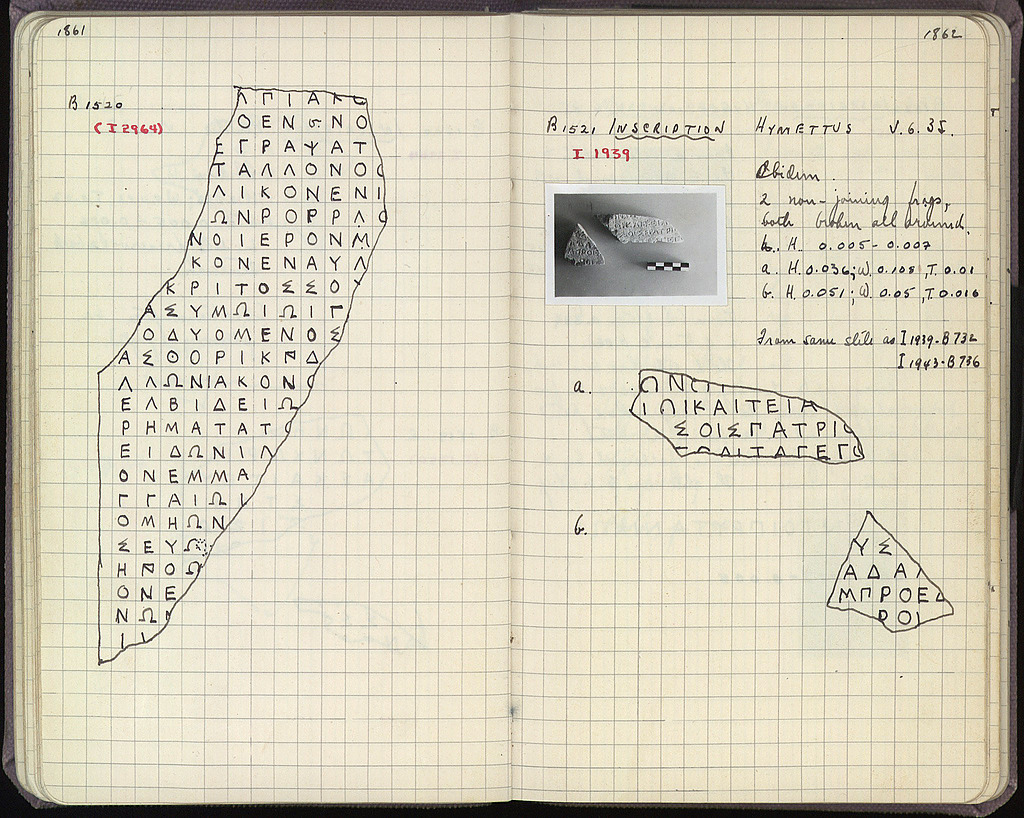 1861
B 1520
(I 2964)
Λ Π Ι Α Κ Ο
Ο Ε Ν Ν Ο
Ε Γ Ρ Α Ψ Α Τ
Τ Α Λ Λ Ο Ν Ο
Λ Ι Κ Ο Ν Ε Ν Ι
Ω Ν Ρ Ο Ρ Ρ Λ
Ν Ο Ι Ε Ρ Ο Ν Μ
Κ Ο Ν Ε Ν Α Υ Λ
Κ Ρ Ι Τ Ο Σ Σ Ο
Α Σ Υ Μ Ω Ι Ω Ι Γ
Ο Δ Υ Ο Μ Ε Ν Ο Σ
Α Σ Ο Ο Ρ Ι Κ Δ
Λ Λ Ω Ν Ι Α Κ Ο Ν
Ε Λ Β Ι Δ Ε Ι Ω
Ρ Η Μ Α Τ Α Τ
Ε Ι Δ Ω Ν Ι Λ
Ο Ν Ε Μ Μ Α
Γ Γ Α Ι Ω Ι
Ο Μ Η Ω Ν
Σ Ε Υ Ω
Η Ο Ω
Ο Ν Ε
Ν Ω
Ι Ι
1862
B 1521 INSCRIPTION HYMETTUS V.6.35.
I 1939
Ibidem.
2 non-joining frags,
both broken all around.
H. 0.005-0.007
a. H. 0.036; W. 0.108, T. 0.01
b. H. 0.051; W. 0.05, T. 0.016
From same stele as I 1939-B 732
I 1943-B 736
a.
Ω Ν
Ι Ω Ι Κ Α Ι Τ Ε Ι Α
Σ Ο Ι Σ Γ Α Τ Ρ Ι
Δ Ι Τ Α Γ Ε Γ
b.
Υ Σ
Α Δ Α
Μ Π Ρ Ο Ε Δ
Ρ Ο Ι